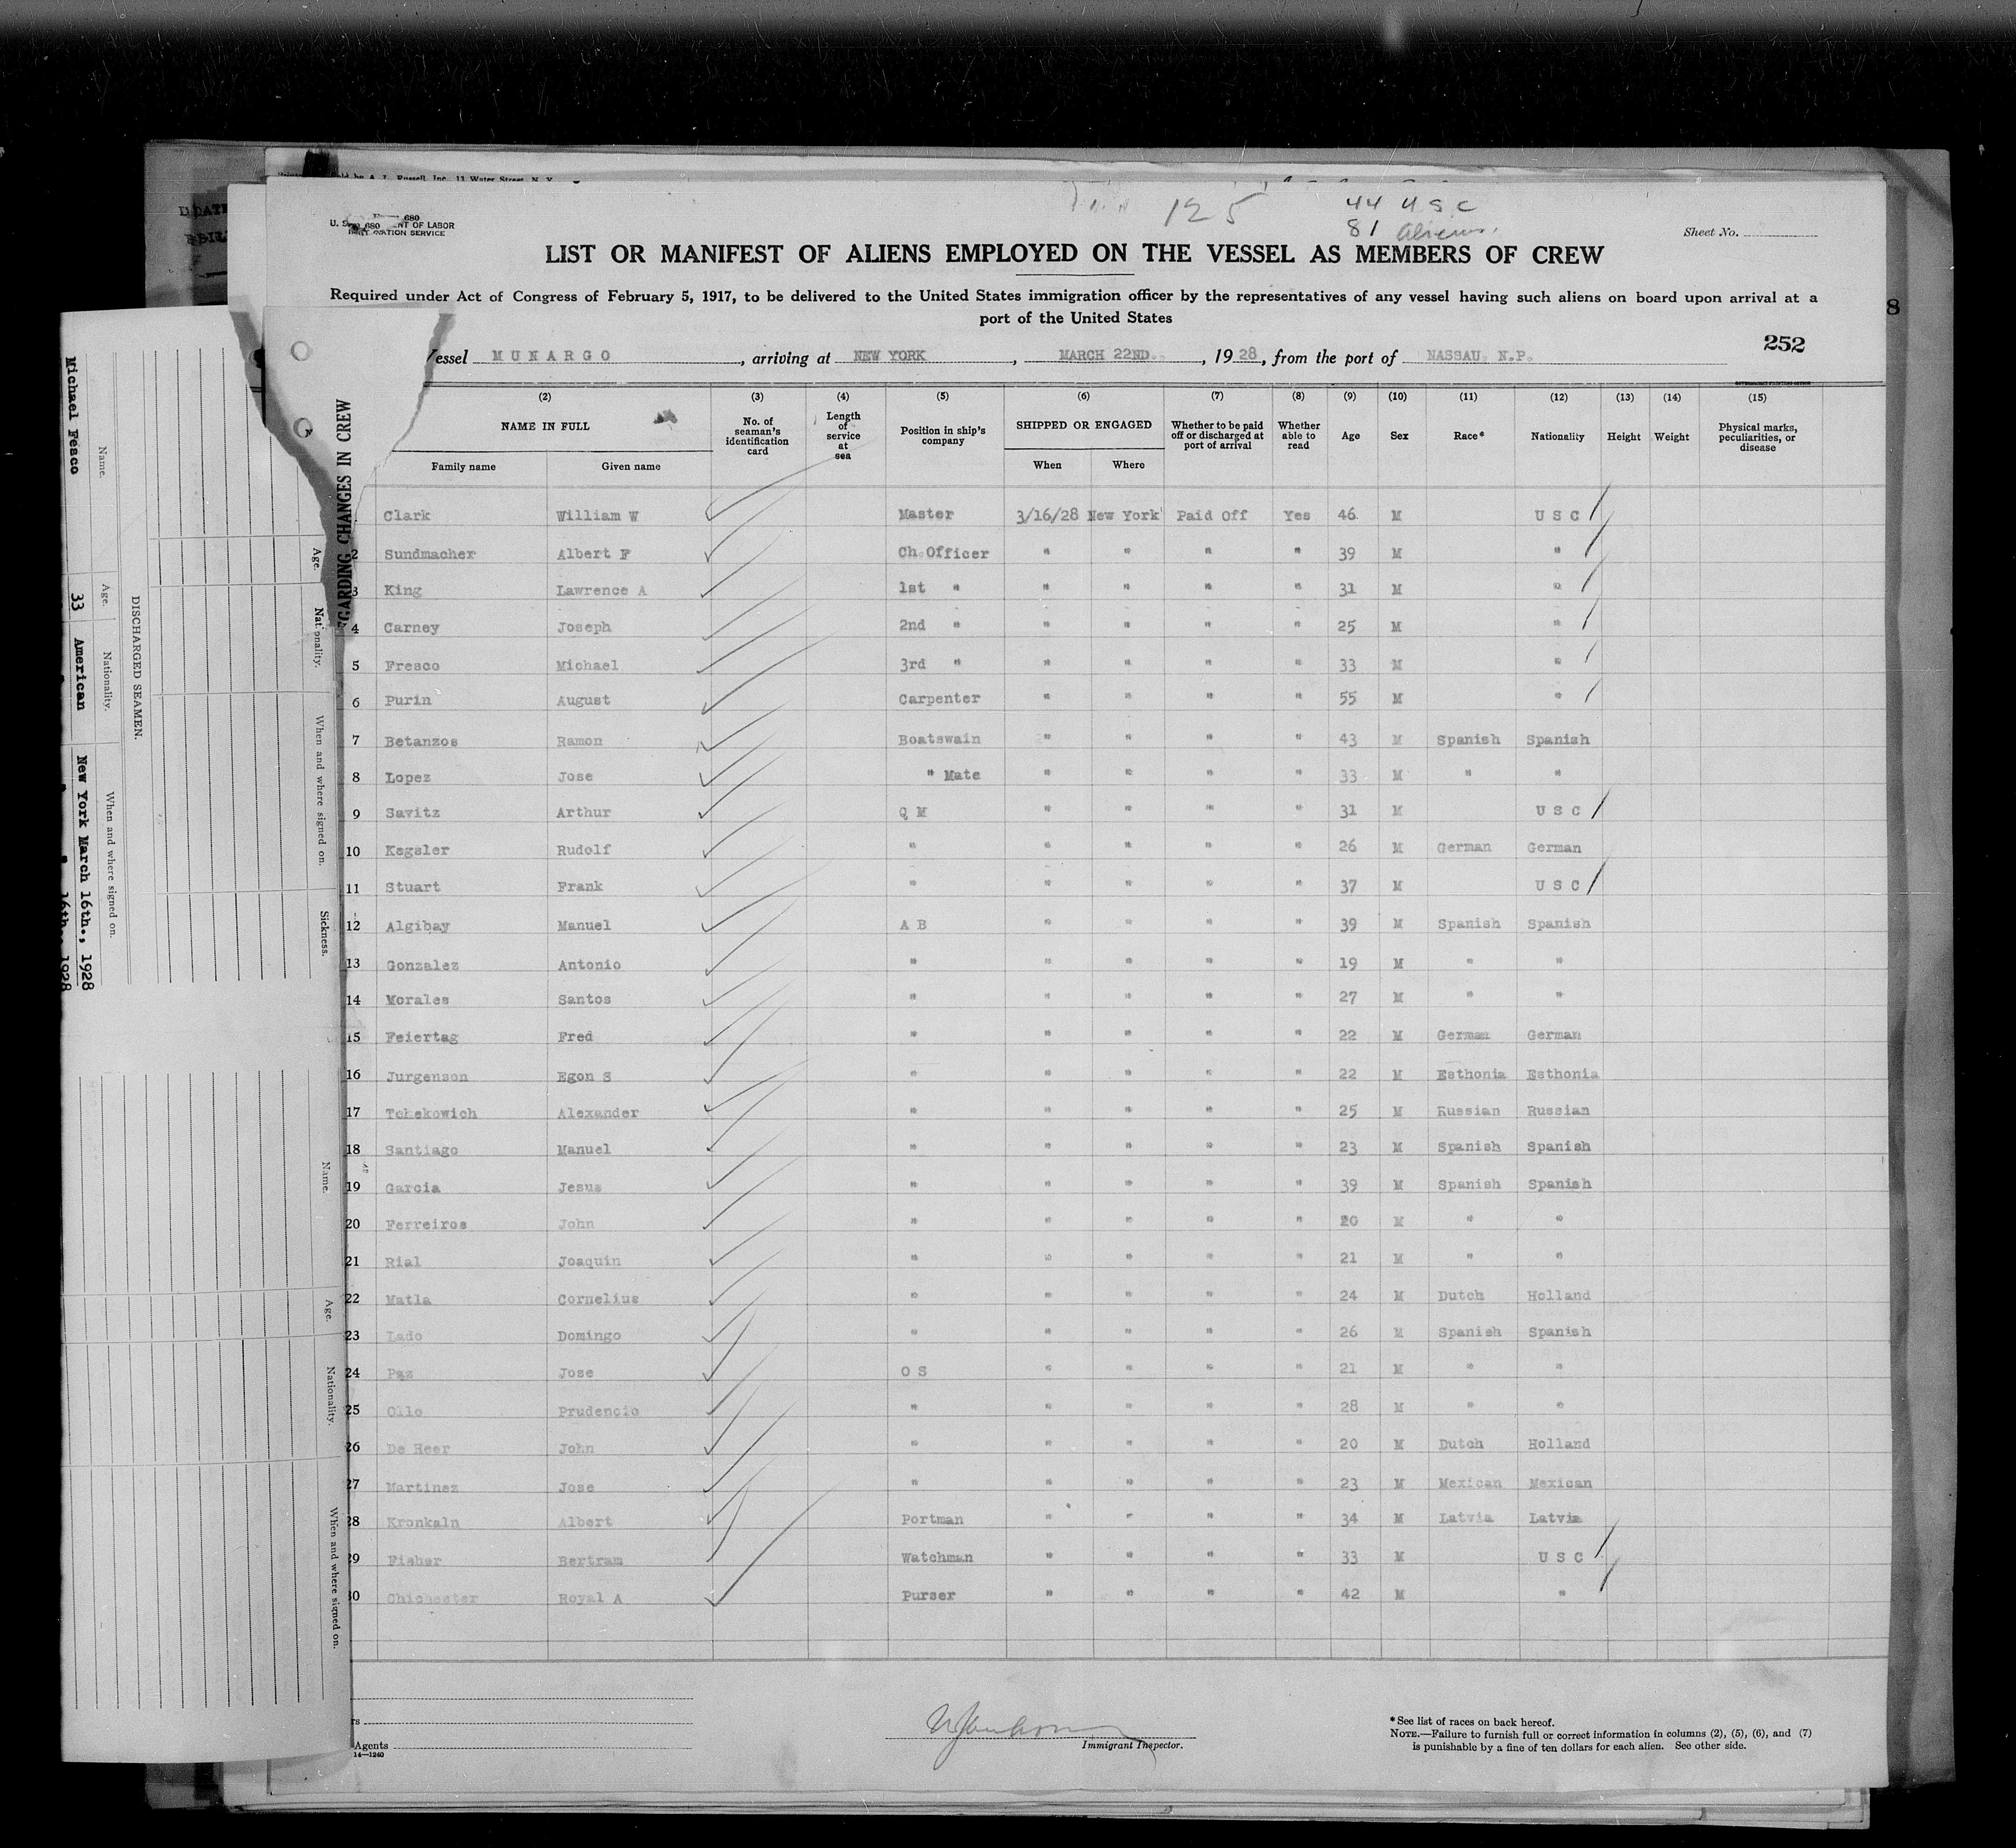 125
44 U S C
81 Aliens.
680
U. S. DEPARTMENT OF LABOR
IMMIGRATION SERVICE
Sheet No.
LIST OR MANIFEST OF ALIENS EMPLOYED ON THE VESSEL AS MEMBERS OF CREW
Required under Act of Congress of February 5, 1917, to be delivered to the United States immigration officer by the representatives of any vessel having such aliens on board upon arrival at a
port of the United States
252
Vessel MUNARGO, arriving at NEW YORK, MARCH 22ND., 1928, from the port of NASSAU. N.P.
(2) (3) (4) (5) (6) (7) (8) (9) (10) (11) (12) (13) (14) (15)
NAME IN FULL No. of seaman's identification card Length of service at sea Position in ship's company SHIPPED OR ENGAGED Whether to be paid off or discharged at port of arrival Whether able to read Age Sex Race* Nationality Height Weight Physical marks, peculiarities, or disease
Family name Given name When Where
Clark William W Master 3/16/28 New York Paid Off Yes 46 M U S C
2 Sundmacher Albert F Ch.Officer " " " " 39 M "
3 King Lawrence A 1st " " " " " 31 M "
4 Carney Joseph 2nd " " " " " 25 M "
5 Fresco Michael 3rd " " " " " 33 M "
6 Purin August Carpenter " " " " 55 M "
7 Betanzos Ramon Boatswain " " " " 43 M Spanish Spanish
8 Lopez Jose " Mate " " " " 33 M " "
9 Savitz Arthur Q M " " " " 31 M U S C
10 Kegsler Rudolf " " " " " 26 M German German
11 Stuart Frank " " " " " 37 M U S C
12 Algibay Manuel A B " " " " 39 M Spanish Spanish
13 Gonzalez Antonio " " " " " 19 M " "
14 Morales Santos " " " " " 27 M " "
15 Feiertag Fred " " " " " 22 M German German
16 Jurgenson Egon S " " " " " 22 M Esthonia Esthonia
17 Tchekowich Alexander " " " " " 25 M Russian Russian
18 Santiago Manuel " " " " " 23 M Spanish Spanish
19 Garcia Jesus " " " " " 39 M Spanish Spanish
20 Ferreiros John " " " " " 20 M " "
21 Rial Joaquin " " " " " 21 M " "
22 Matla Cornelius " " " " " 24 M Dutch Holland
23 Lado Domingo " " " " " 26 M Spanish Spanish
24 Paz Jose O S " " " " 21 M " "
25 Ollo Prudencio " " " " " 28 M " "
26 De Heer John " " " " " 20 M Dutch Holland
27 Martinez Jose " " " " " 23 M Mexican Mexican
28 Kronkaln Albert Portman " " " " 34 M Latvia Latvia
29 Fisher Bertram Watchman " " " " 33 M U S C
30 Chichester Royal A Purser " " " " 42 M "
Agents
14—1240
Immigrant Inspector.
*See list of races on back hereof.
NOTE.—Failure to furnish full or correct information in columns (2), (5), (6), and (7)
is punishable by a fine of ten dollars for each alien. See other side.
REGARDING CHANGES IN CREW
Age. Nationality. When and where signed on. Sickness.
Name. Age. Nationality. When and where signed on.
DISCHARGED SEAMEN.
Name. Age. Nationality. When and where signed on.
Michael Fesco 33 American New York March 16th., 1928
16th. 1928